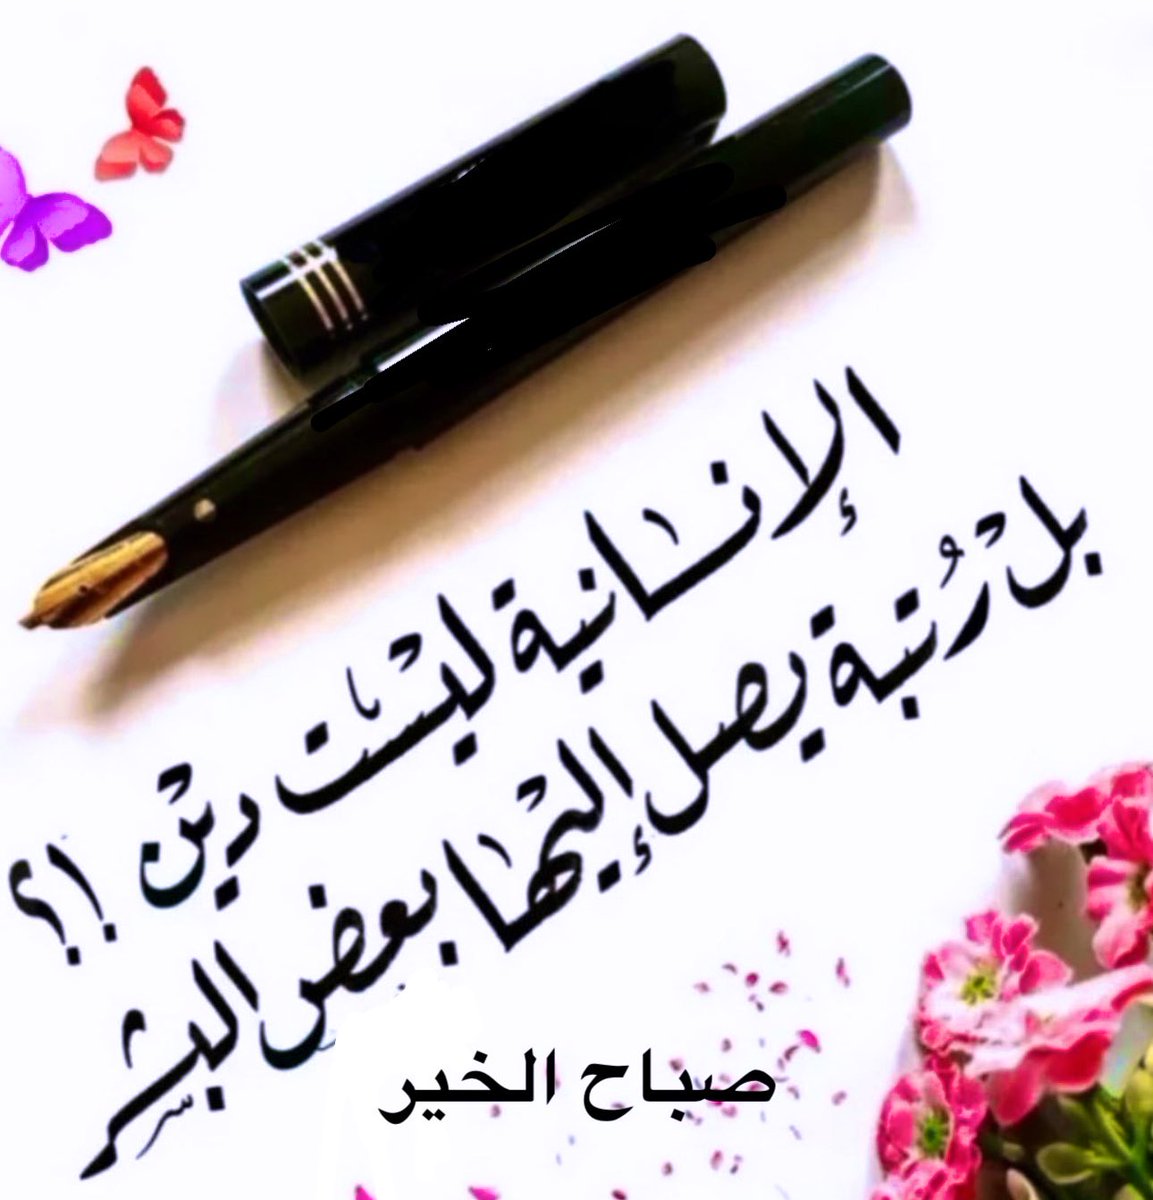 الإنسانية ليْست ديْن !؟
بل رُتبة يصل إليْها بعض البشر
صباح الخير